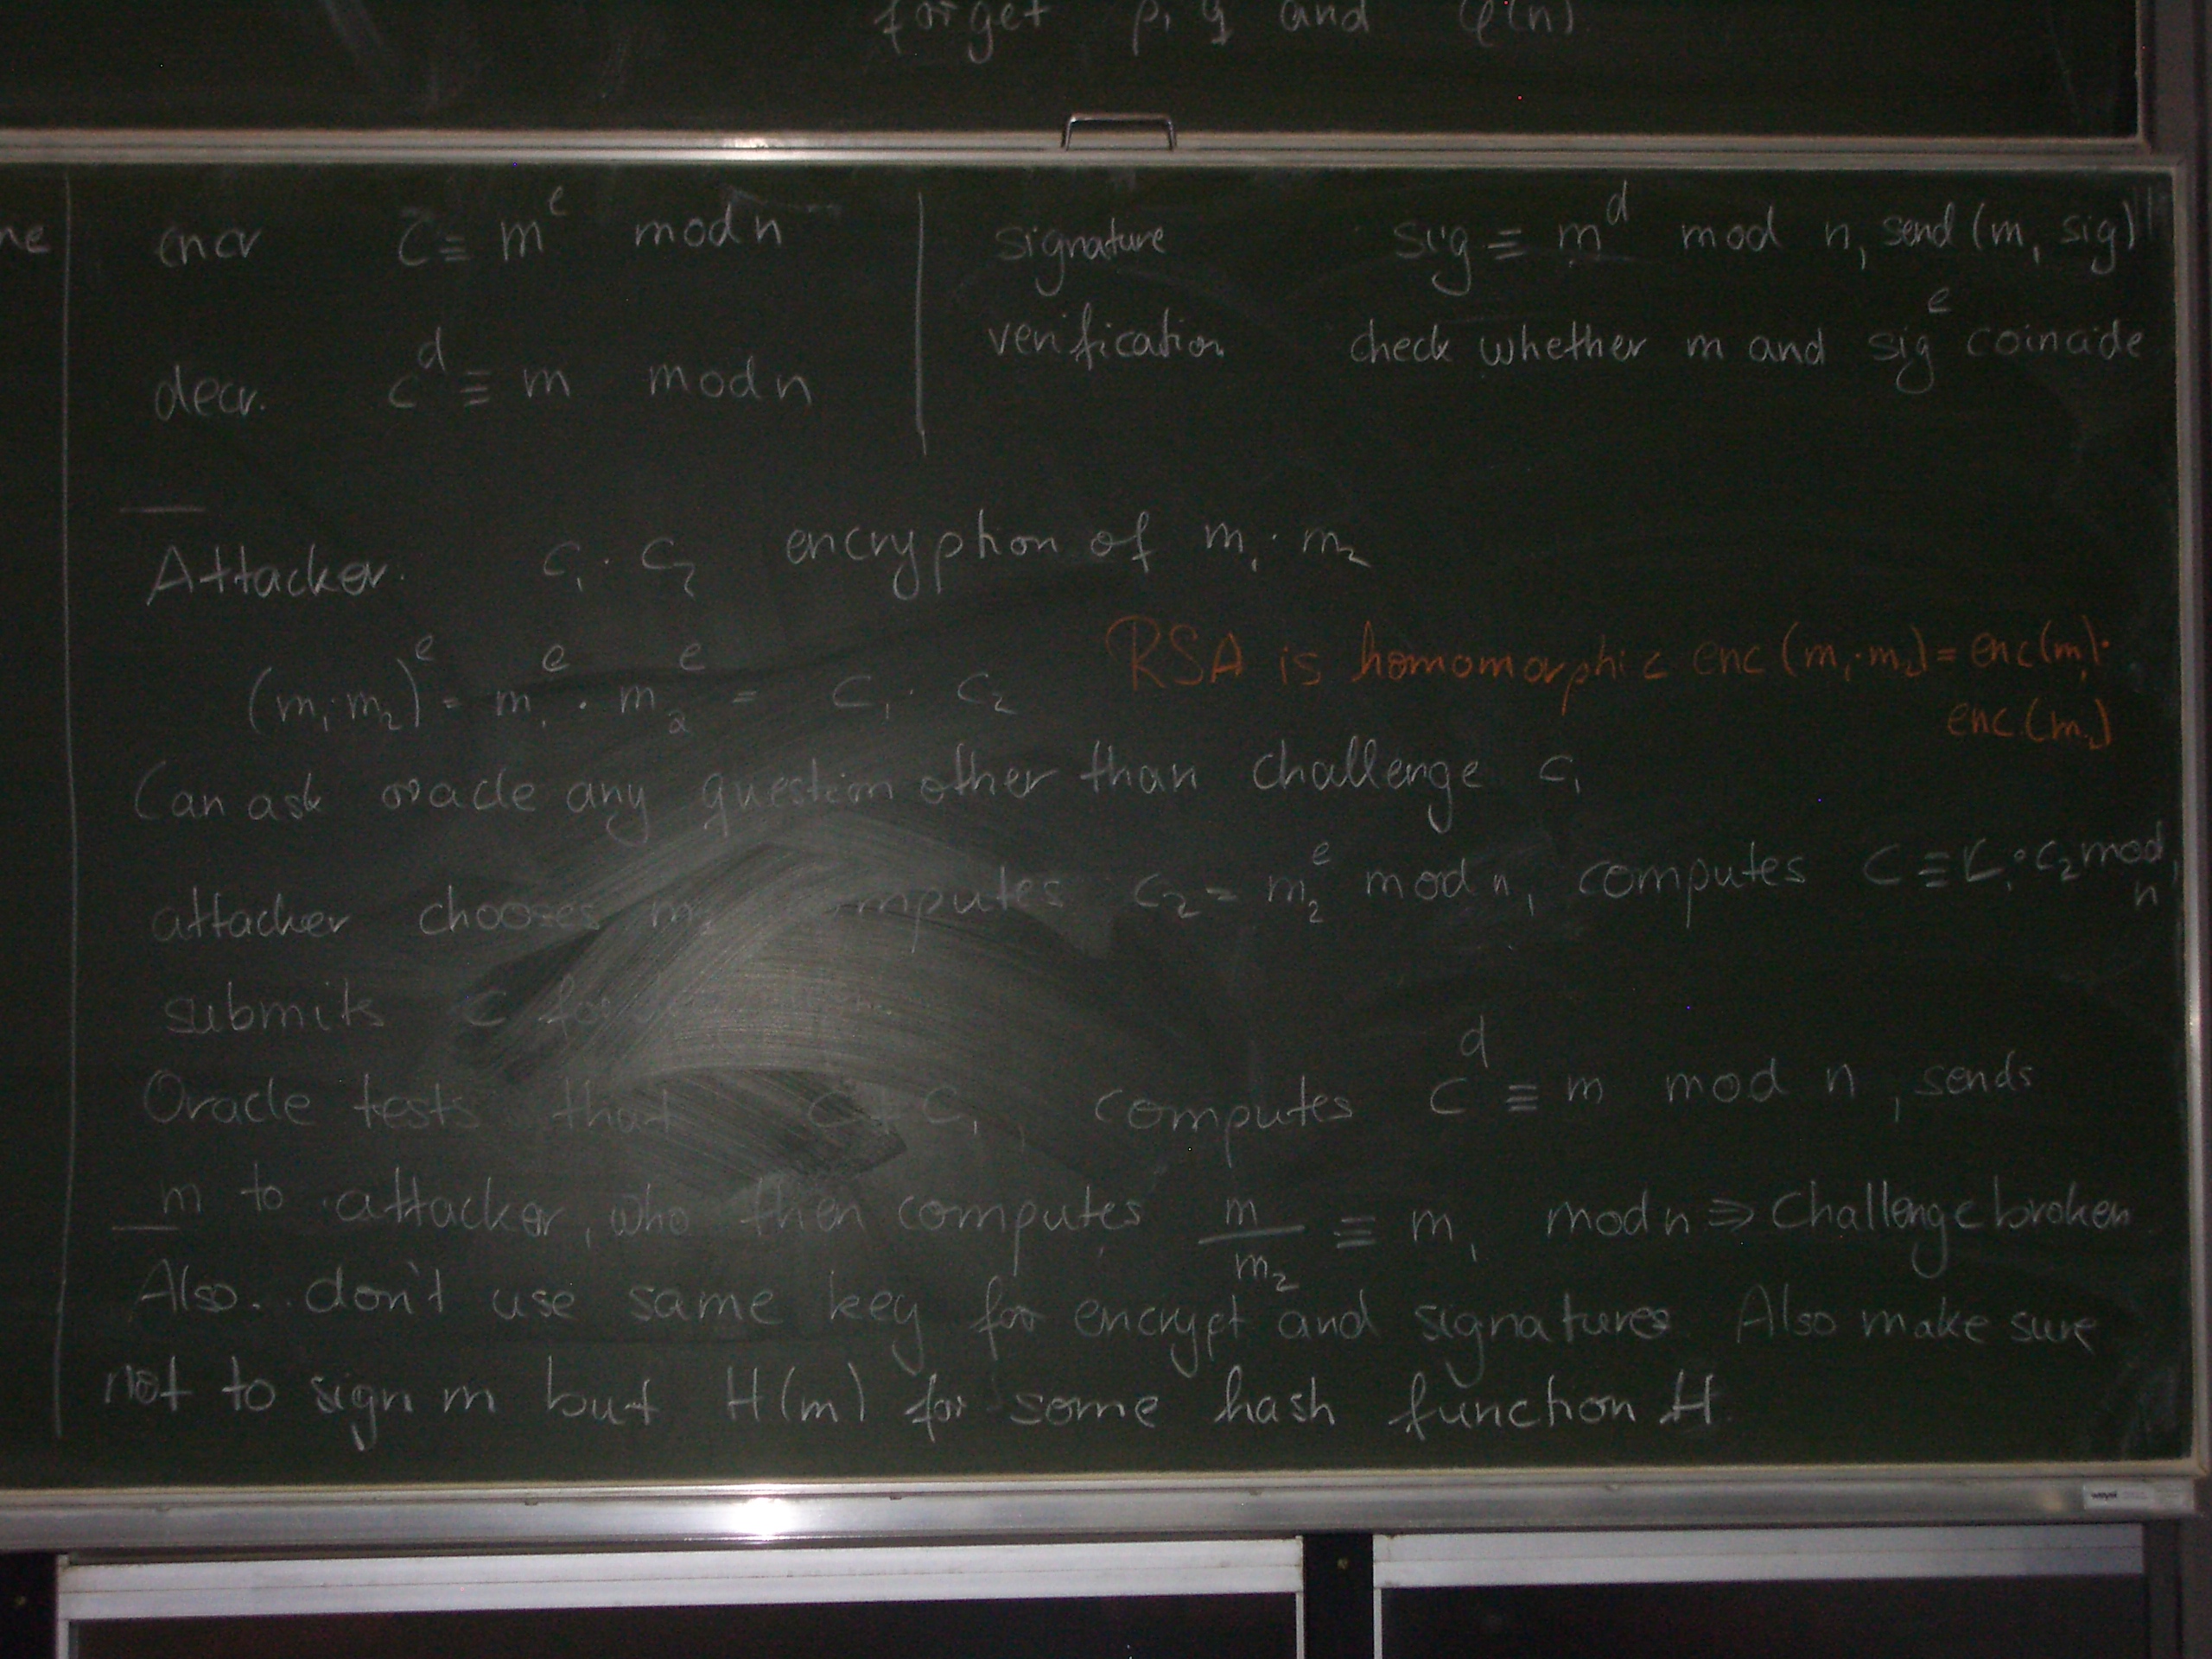 forget p, q and φ(n)
ne
encr c ≡ m^e mod n
decr. c^d ≡ m mod n
signature sig ≡ m^d mod n, send (m, sig)
verification check whether m and sig^e coincide
Attacker. c₁ · c₂ encryption of m₁ · m₂
(m₁·m₂)^e = m₁^e · m₂^e = c₁ · c₂
RSA is homomorphic enc(m₁·m₂) = enc(m₁)·
enc(m₂)
Can ask oracle any question other than challenge c₁
attacker chooses m₂ computes c₂ = m₂^e mod n, computes c ≡ c₁·c₂ mod n
submits c for
Oracle tests that c ≠ c₁, computes c^d ≡ m mod n, sends
m to attacker, who then computes m/m₂ ≡ m₁ mod n ⇒ Challenge broken
Also. don't use same key for encrypt and signatures. Also make sure
not to sign m but H(m) for some hash function H.